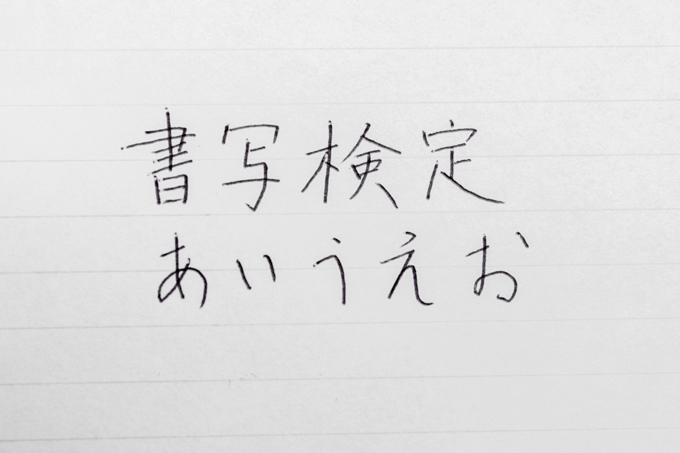 書写検定
あいうえお